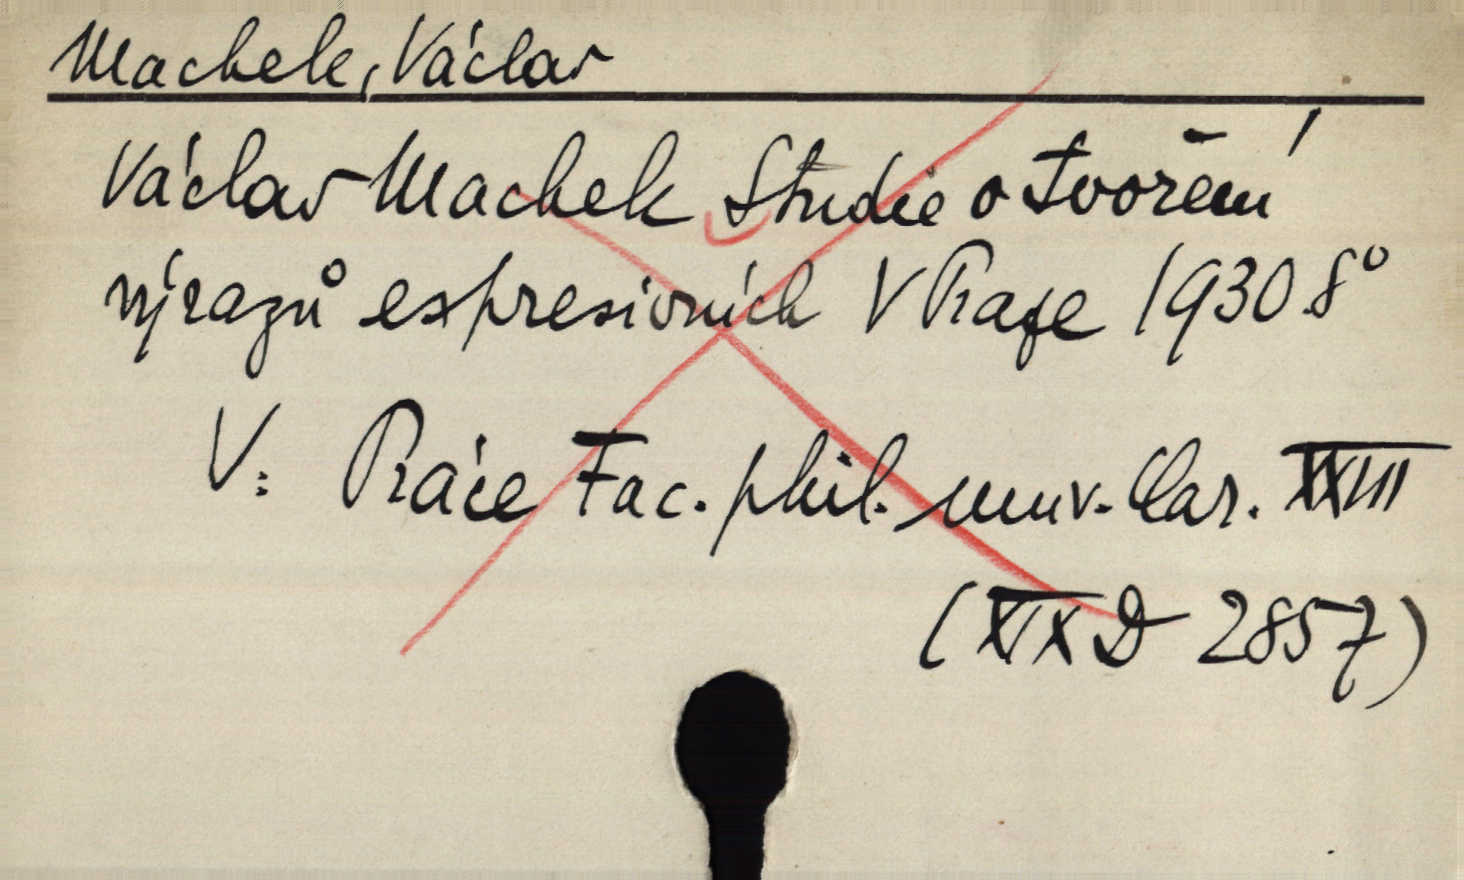 Machek, Václav
Václav Machek Studie o tvoření
výrazů expresivních V Praze 1930 8°
V: Práce Fac. phil. univ. Car. XXIII
(XIX D 2857)